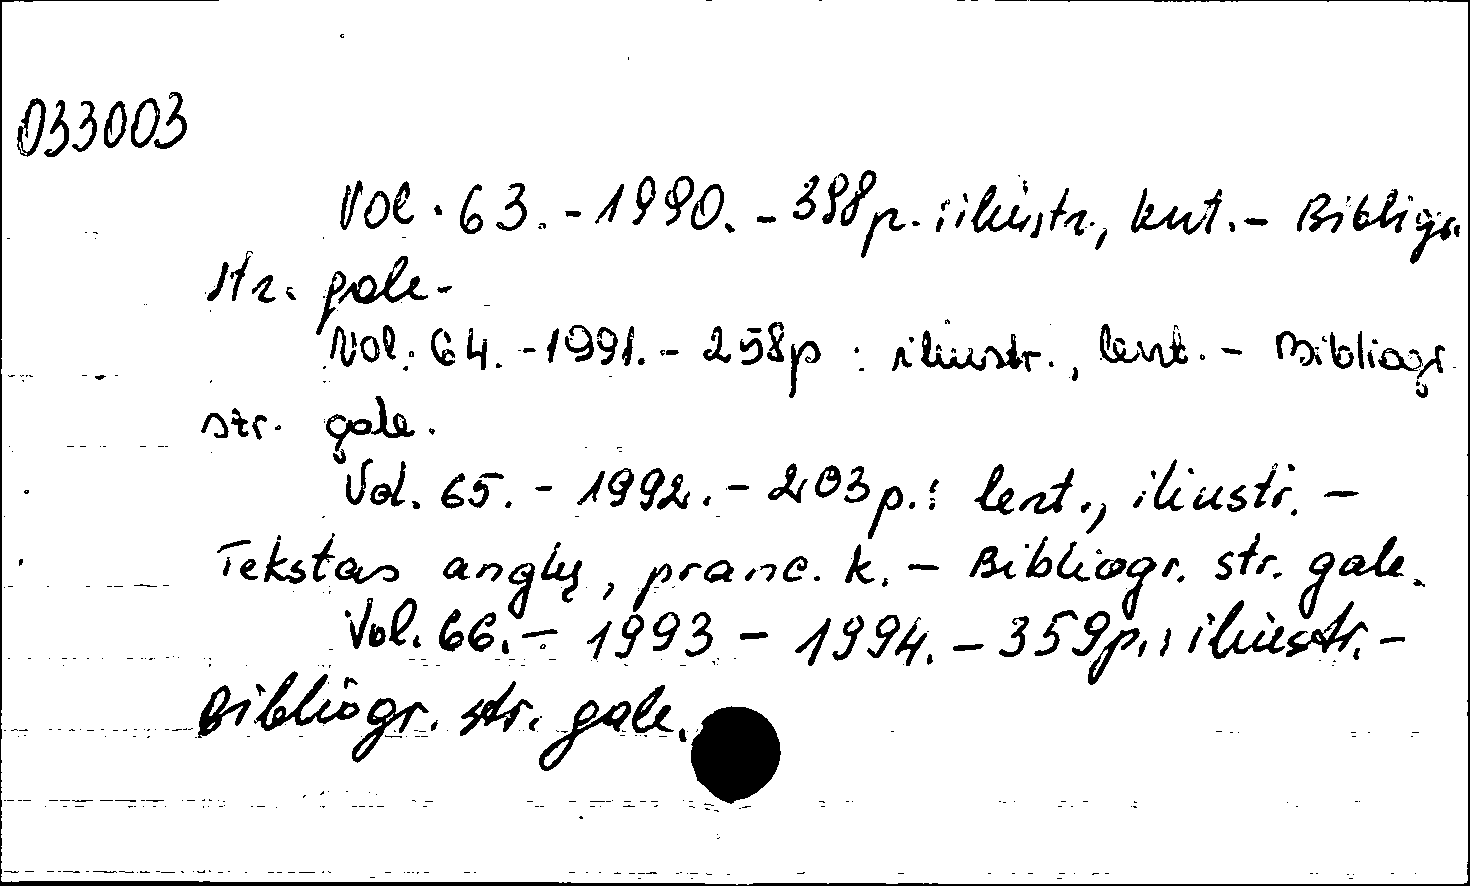 033003
Vol. 63. - 1990. - 398p. : iliustr., lent. - Bibliogr.
str. gale.
Vol. 64. - 1991. - 258p : iliustr., lent. - Bibliogr.
str. gale.
Vol. 65. - 1992. - 203p. : lent., iliustr. -
Tekstas anglų, pranc. k. - Bibliogr. str. gale.
Vol. 66. - 1993 - 1994. - 359p. : iliustr. -
Bibliogr. str. gale.